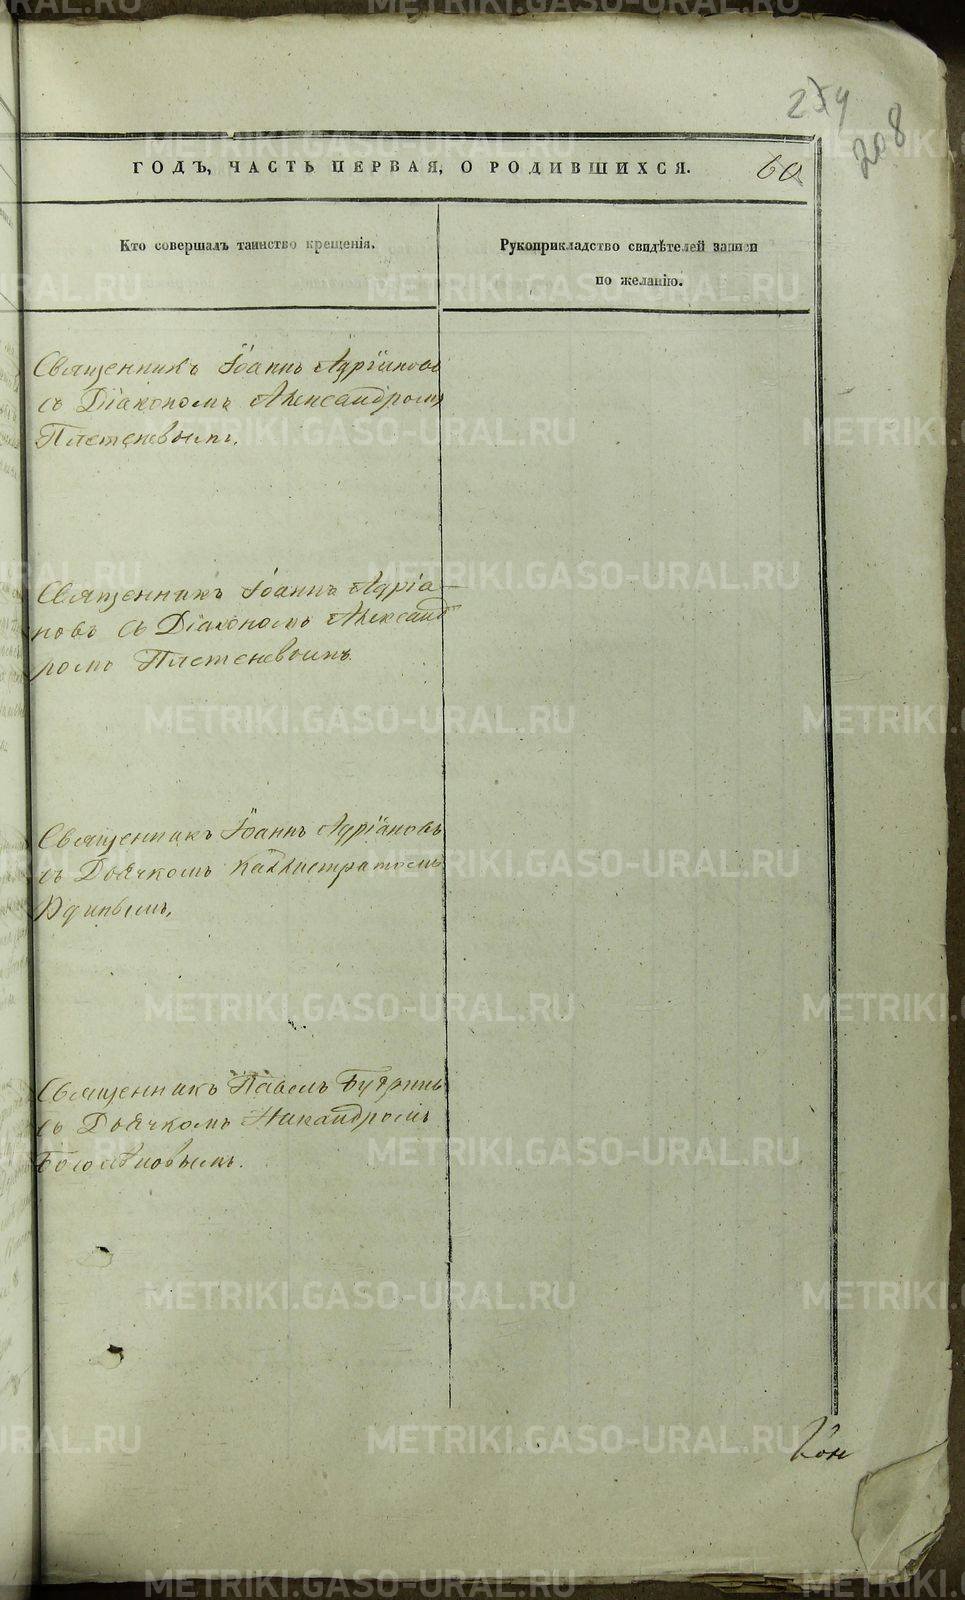 208
ГОДЪ, ЧАСТЬ ПЕРВАЯ, О РОДИВШИХСЯ. 60
Кто совершалъ таинство крещенія.
Рукоприкладство свидѣтелей записи
по желанію.
Священникъ Іоаннъ Адріановъ
съ Діакономъ Александромъ
Плетеневымъ.
Священникъ Іоаннъ Адріа-
новъ съ Діакономъ Александ
ромъ Плетеневымъ.
Священникъ Іоаннъ Адріановъ
съ Дьячкомъ Каллистратомъ
Священникъ Павелъ Будринъ
съ Дьячкомъ Никандромъ
METRIKI.GASO-URAL.RU